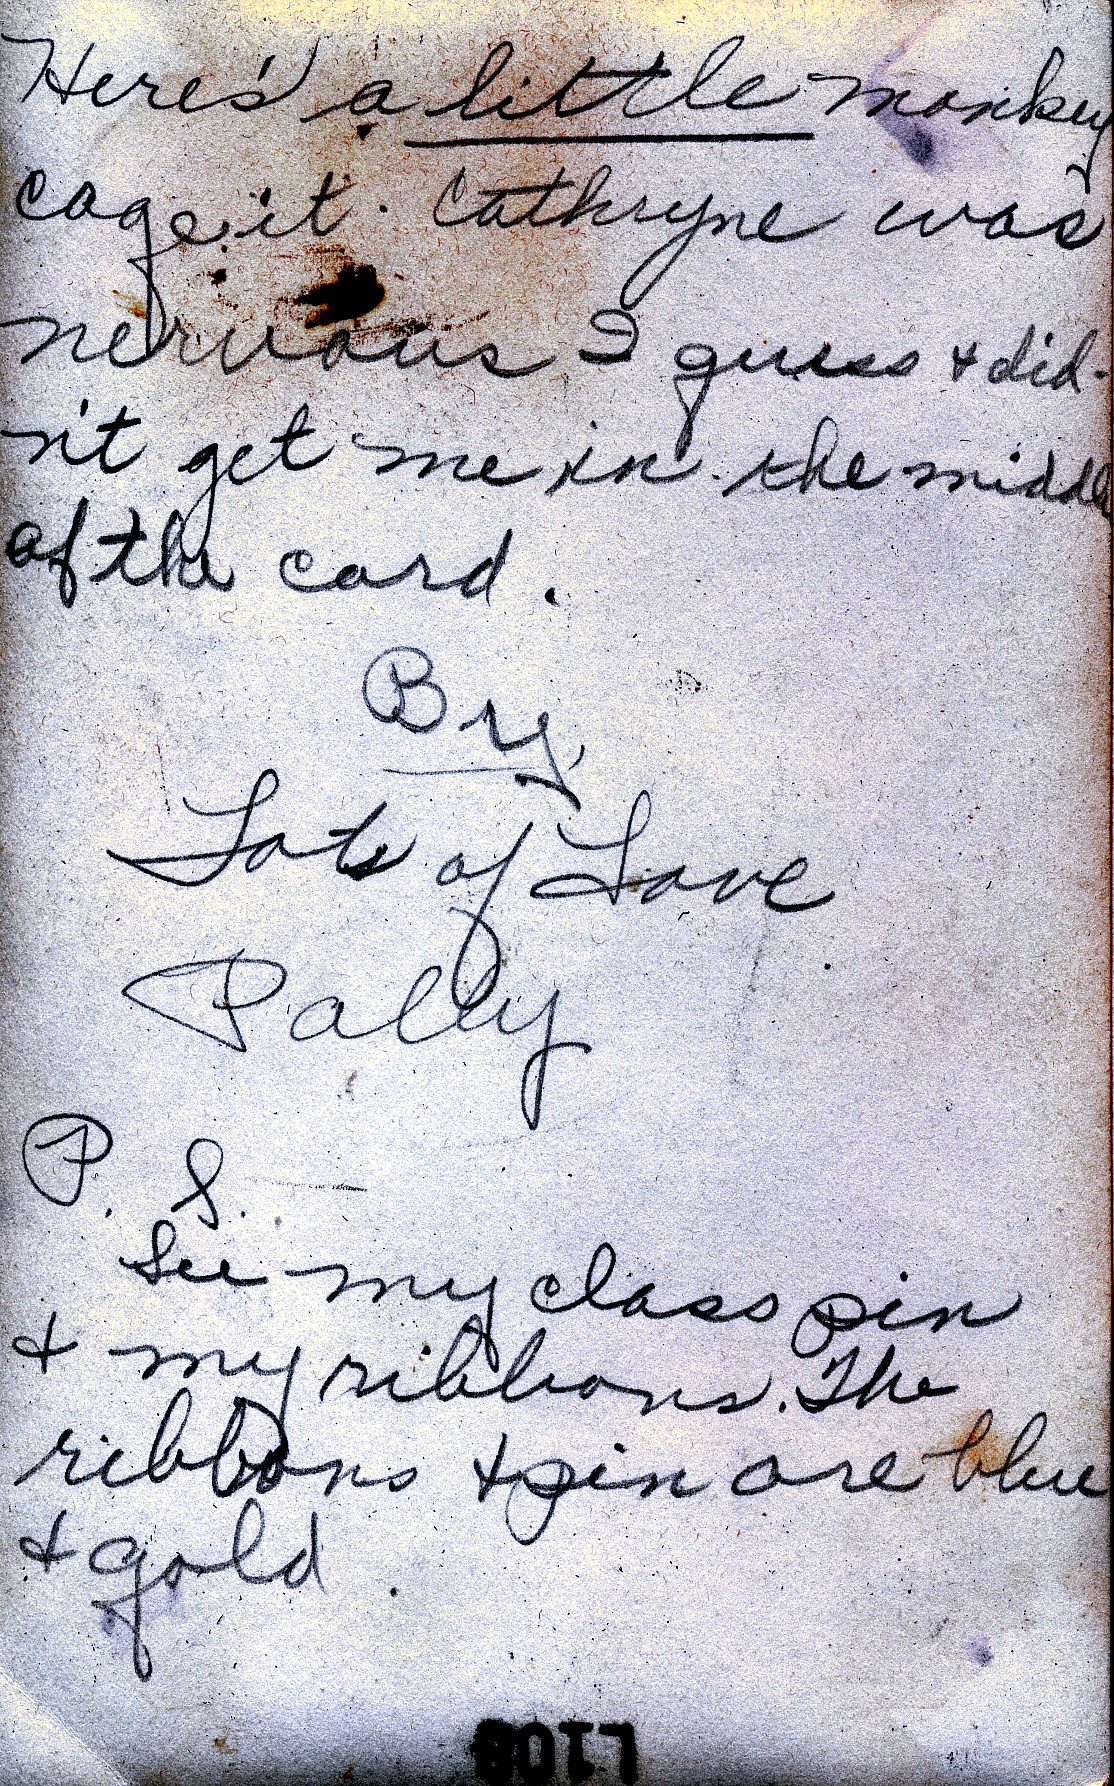 Here's a little monkey
cage it. Cathryne was
nervous I guess & did-
n't get me in the middle
of the card.
By,
Lots of Love
Pally
P. S.
See my class pin
& my ribbons. The
ribbons & pin are blue
& gold.